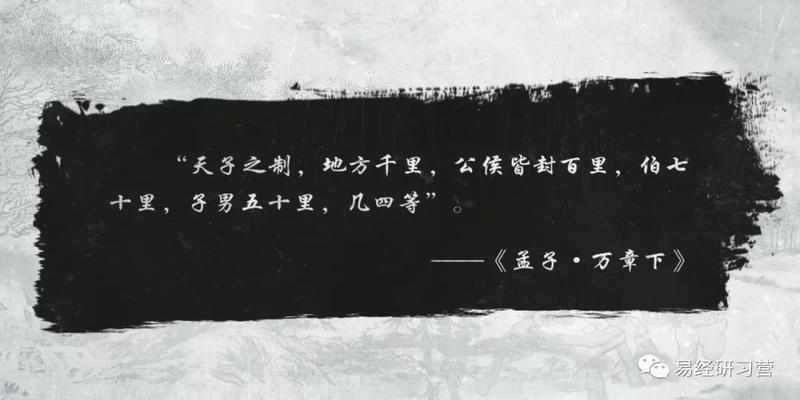 “天子之制，地方千里，公侯皆封百里，伯七
十里，子男五十里，几四等”。
——《孟子·万章下》
易经研习营